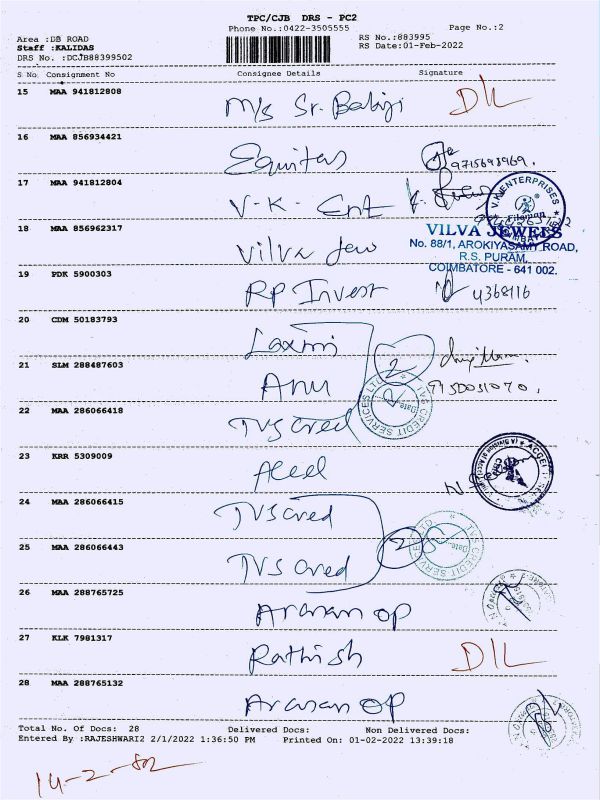 TPC/CJB DRS - PC2
Phone No.:0422-3505555 Page No.:2
Area :DB ROAD RS No.:883995
Staff :KALIDAS RS Date:01-Feb-2022
DRS No. :DCJB88399502
S No Consignment No Consignee Details Signature
15 MAA 941812808 M/s Sr. Balaji D/L
16 MAA 856934421 Equitas 9715698969.
17 MAA 941812804 V-K- Ent
V.K. ENTERPRISES
18 MAA 856962317 Vilva Jew
VILVA JEWELS
No. 88/1, AROKIYASAMY ROAD,
R.S. PURAM,
COIMBATORE - 641 002.
19 PDK 5900303 RP Invest 4368116
20 CDM 50183793 Laxmi
21 SLM 288487603 Anu 2 9750031070.
22 MAA 286066418 TVS Cred
TVS CREDIT SERVICES LTD
Date
23 KRR 5309009 Accel
24 MAA 286066415 TVS Cred
25 MAA 286066443 TVS Cred 2
TVS CREDIT SERVICES LTD
Date
26 MAA 288765725 Aravan OP
27 KLK 7981317 Rathish D/L
28 MAA 288765132 Aravan OP
Total No. Of Docs: 28 Delivered Docs: Non Delivered Docs:
Entered By :RAJESHWARI2 2/1/2022 1:36:50 PM Printed On: 01-02-2022 13:39:18